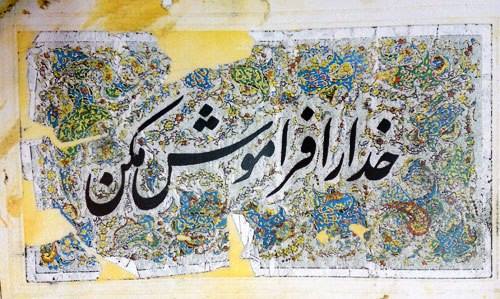 خدا را فراموش مکن